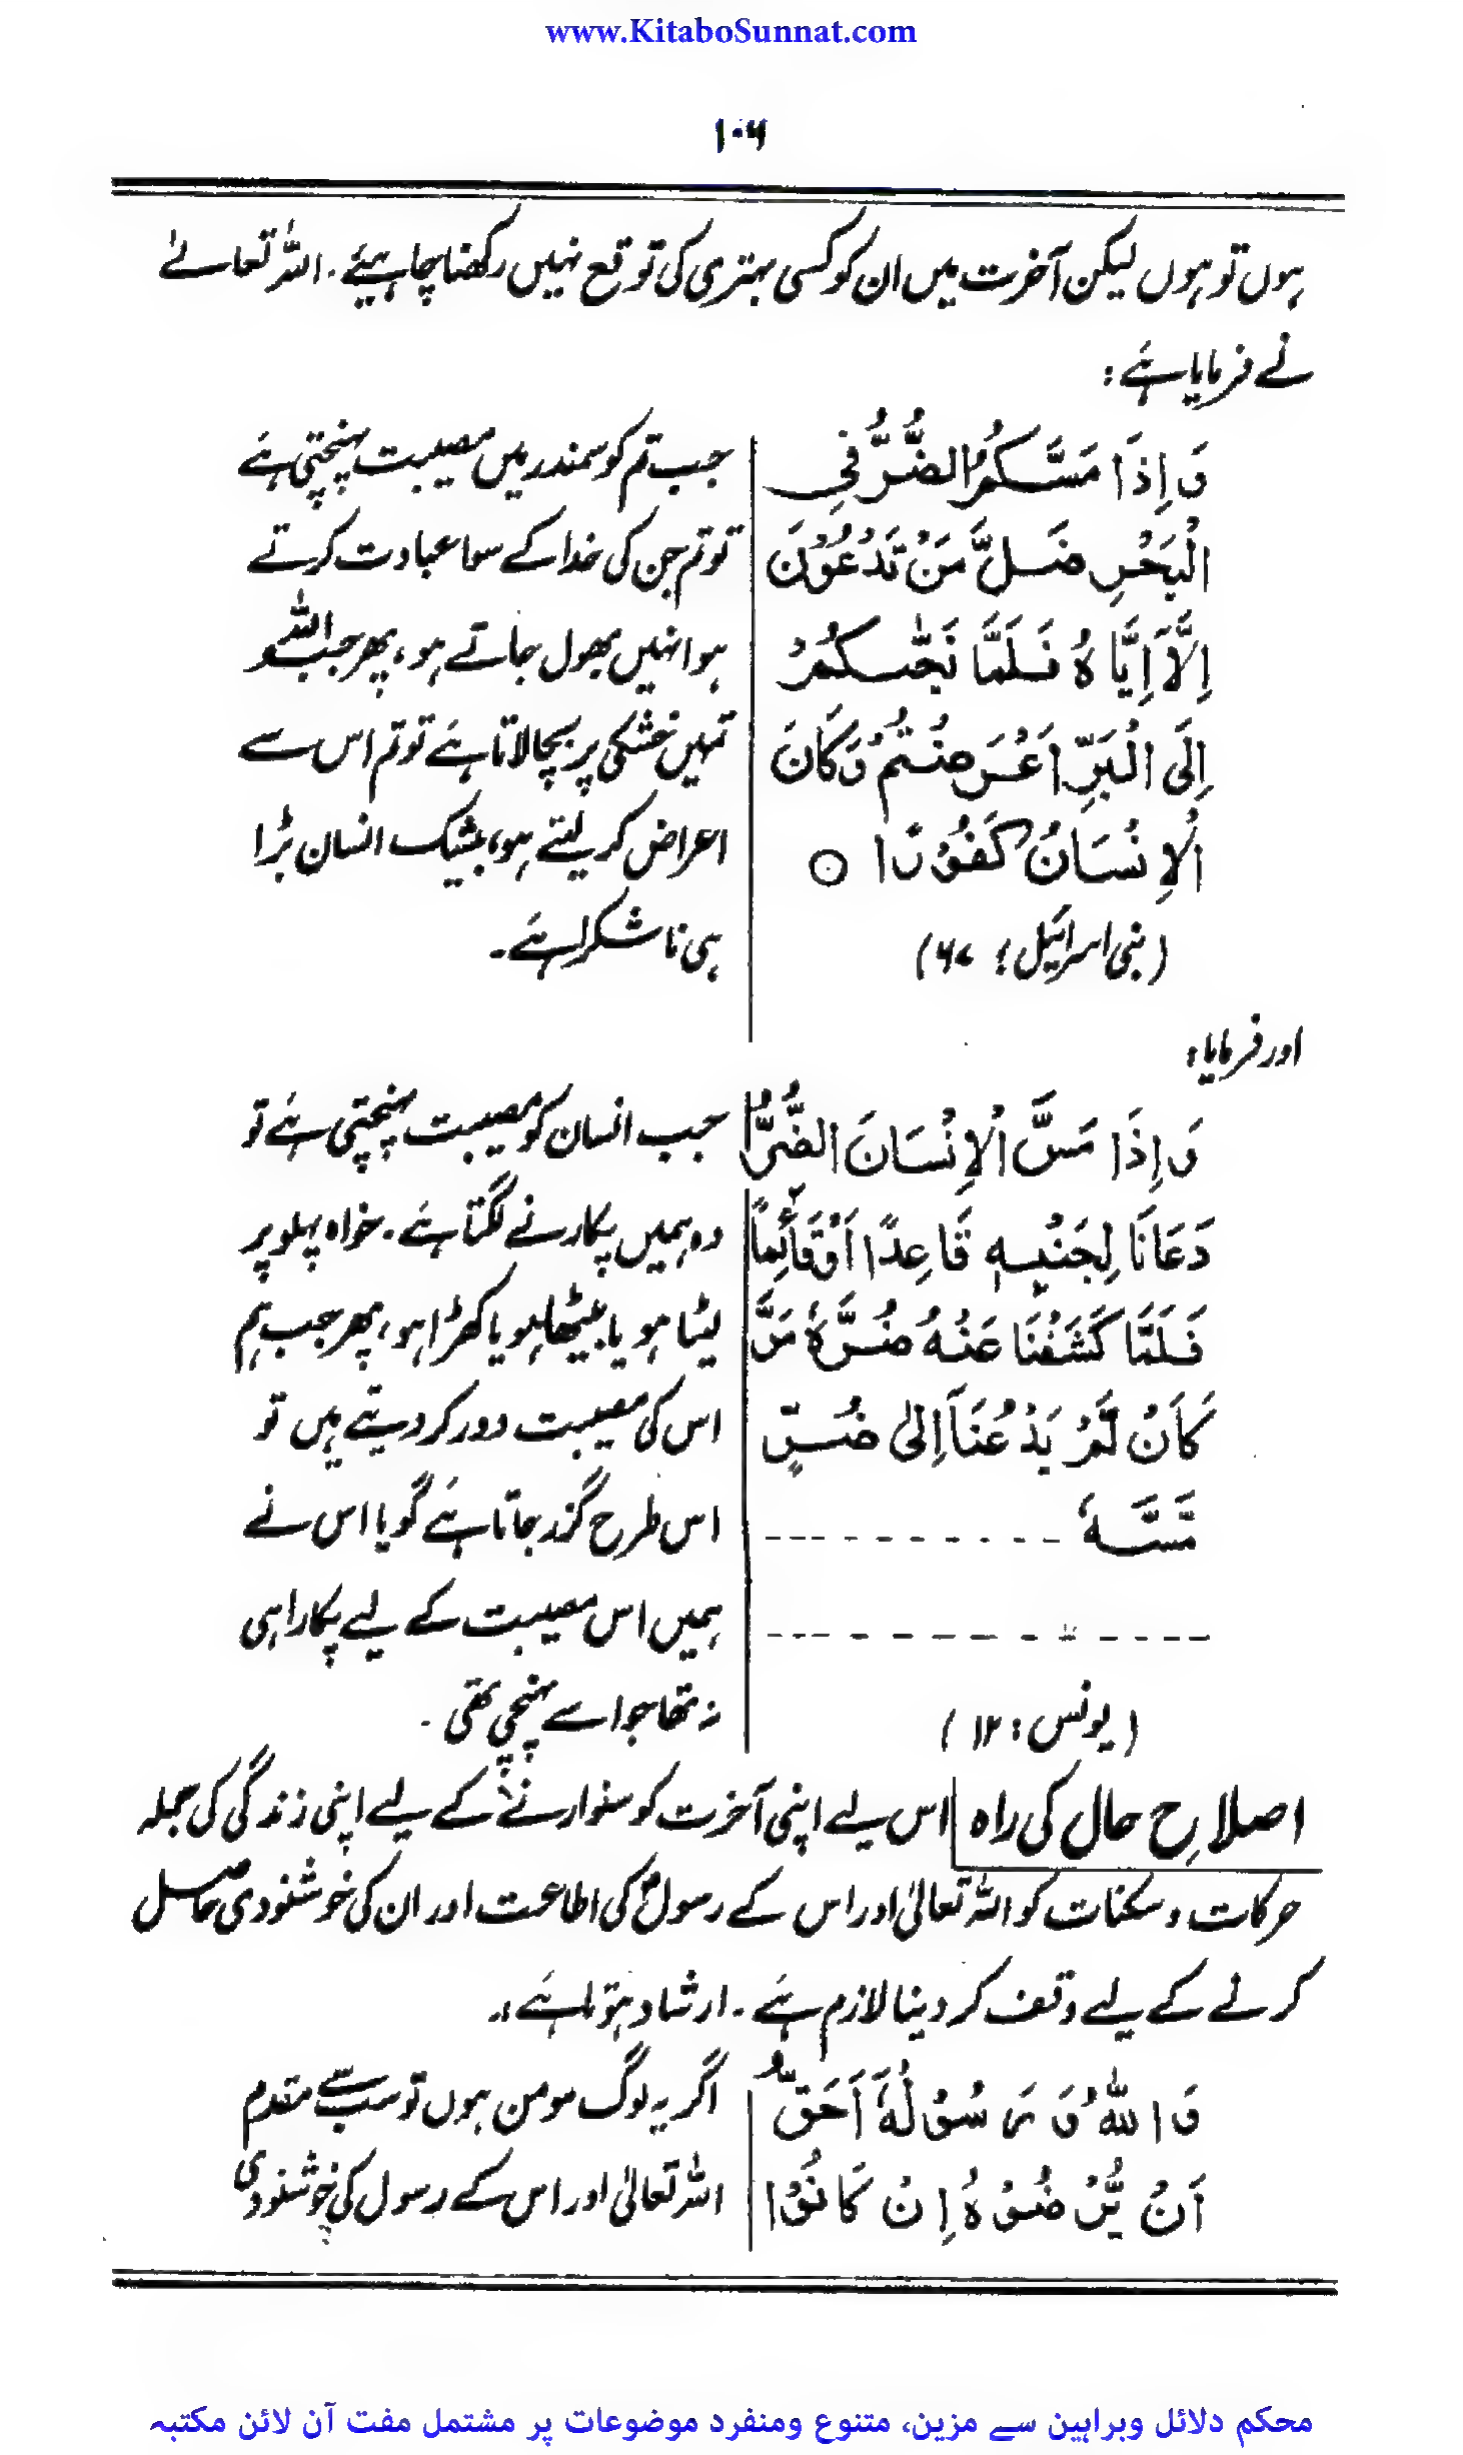 www.KitaboSunnat.com
۱۰۶
ہوں تو ہوں لیکن آخرت میں ان کو کسی بہتری کی توقع نہیں رکھنا چاہیئے۔ اللہ تعالےٰ
نے فرمایا ہے :
وَاِذَا مَسَّكُمُ الضُّرُّ فِی
الْبَحْرِ ضَلَّ مَنْ تَدْعُوْنَ
اِلَّآ اِیَّاہُ فَلَمَّا نَجّٰىكُمْ
اِلَى الْبَرِّ اَعْرَضْتُمْ وَكَانَ
الْاِنْسَانُ كَفُوْرًا ○
(بنی اسرائیل ؛ ۶۷)
جب تم کو سمندر میں مصیبت پہنچتی ہے
تو تم جن کی خدا کے سوا عبادت کرتے
ہو انہیں بھول جاتے ہو، پھر جب اللہ
تمہیں خشکی پر بچا لاتا ہے تو تم اس سے
اعراض کر لیتے ہو، بیشک انسان بڑا
ہی ناشکرا ہے۔
اور فرمایا :
وَاِذَا مَسَّ الْاِنْسَانَ الضُّرُّ
دَعَانَا لِجَنْۢبِهٖ قَاعِدًا اَوْ قَآئِمًا
فَلَمَّا كَشَفْنَا عَنْهُ ضُرَّهٗ مَرَّ
كَاَنْ لَّمْ یَدْعُنَآ اِلٰى ضُرٍّ
مَّسَّهٗ ----------
------------
(یونس : ۱۲)
جب انسان کو مصیبت پہنچتی ہے تو
وہ ہمیں پکارنے لگتا ہے۔ خواہ پہلو پر
لیٹا ہو یا بیٹھا ہو یا کھڑا ہو، پھر جب ہم
اس کی مصیبت دور کر دیتے ہیں تو
اس طرح گزر جاتا ہے گویا اس نے
ہمیں اس مصیبت کے لیے پکارا ہی
نہ تھا جو اسے پہنچی تھی۔
اصلاحِ حال کی راہ اس لیے اپنی آخرت کو سنوارنے کے لیے اپنی زندگی کی جملہ
حرکات و سکنات کو اللہ تعالیٰ اور اس کے رسولؐ کی اطاعت اور ان کی خوشنودی حاصل
کرنے کے لیے وقف کر دینا لازم ہے۔ ارشاد ہوتا ہے :
وَاللّٰهُ وَرَسُوْلُهٗٓ اَحَقُّ
اَنْ یُّرْضُوْهُ اِنْ كَانُوْا
اگر یہ لوگ مومن ہوں تو سب سے مقدم
اللہ تعالیٰ اور اس کے رسول کی خوشنودی
محکم دلائل وبراہین سے مزین، متنوع ومنفرد موضوعات پر مشتمل مفت آن لائن مکتبہ